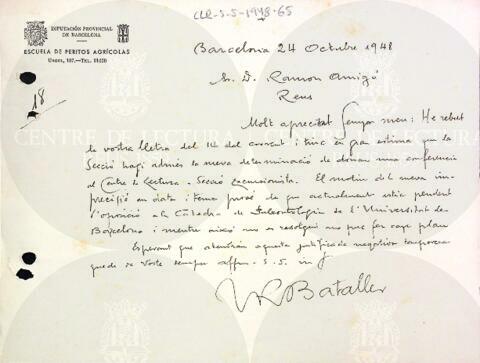 CLR-S-5-1948-65
DIPUTACIÓN PROVINCIAL
DE BARCELONA
ESCUELA DE PERITOS AGRÍCOLAS
URGEL, 187.—TEL.
18
Barcelona 24 Octubre 1948
Sr. D. Ramon Amigó
Reus
Molt apreciat Senyor meu: He rebut
la vostra lletra del 14 del corrent i tinc en gran estima que la
Secció hagi admès la meva determinació de donar una conferencia
al Centre de Lectura - Secció Excursionista. El motiu de la meva im-
precisió en data i tema prové de que actualment estic pendent
de l'oposició a la Càtedra de Paleontologia de l'Universitat de
Barcelona i mentre això no es resolgui no puc fer cap plan
Esperant que atendran aquesta justificada negativa temporera
queda de Vostè sempre affm. s. s.
Bataller
CENTRE DE LECTURA